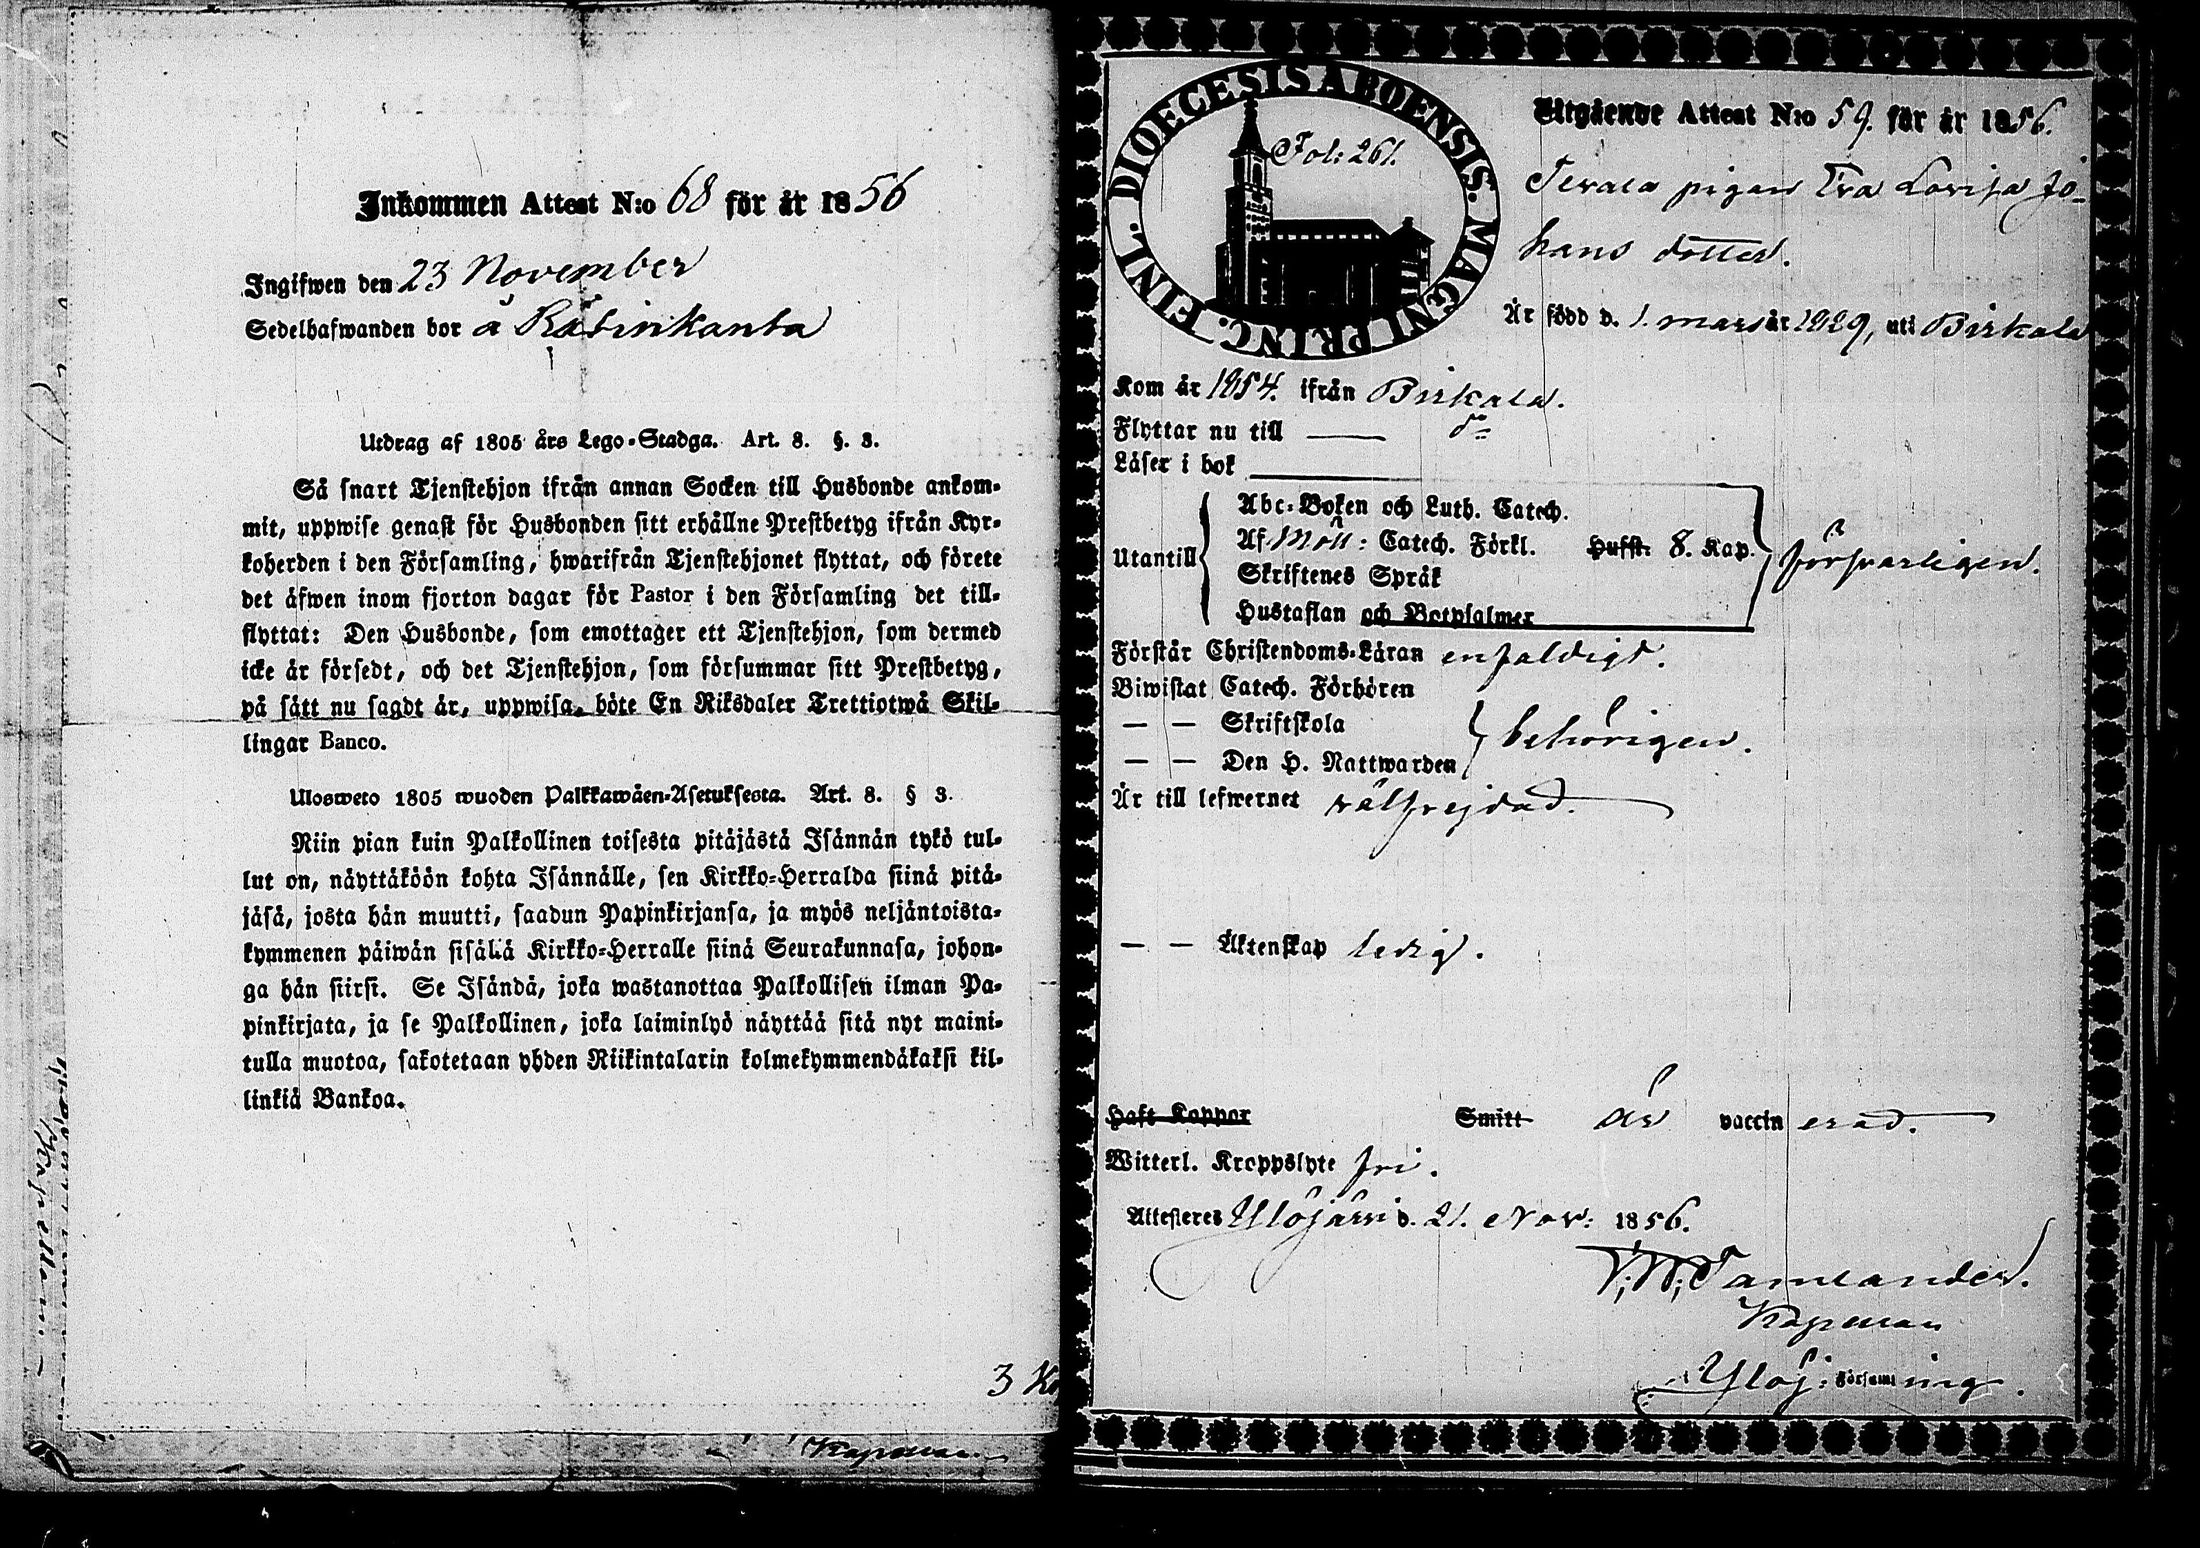 Inkommen Attest N:o 68 för år 1856
Ingifwen den 23 November
Sedelhafwanden bor å
Utdrag af 1805 års Lego-Stadga. Art. 8. §. 3.
Så snart Tjenstehjon ifrån annan Socken till Husbonde ankom-
mit, uppwise genast för Husbonden sitt erhållne Prestbetyg ifrån Kyr-
koherden i den Församling, hwarifrån Tjenstehjonet flyttat, och förete
det äfwen inom fjorton dagar för Pastor i den Församling det till-
flyttat: Den Husbonde, som emottager ett Tjenstehjon, som dermed
icke är försedt, och det Tjenstehjon, som försummar sitt Prestbetyg,
på sätt nu sagdt är, uppwisa, böte En Riksdaler Trettiotwå Skil-
lingar Banco.
Ulosweto 1805 wuoden Palkkawäen-Asetuksesta. Art. 8. § 3.
Niin pian kuin Palkollinen toisesta pitäjästä Isännän tykö tul-
lut on, näyttäköön kohta Isännälle, sen Kirkko-Herralda siinä pitä-
jäsä, josta hän muutti, saadun Papinkirjansa, ja myös neljäntoista-
kymmenen päiwän sisälä Kirkko-Herralle siinä Seurakunnasa, johon-
ga hän siirsi. Se Isändä, joka wastanottaa Palkollisen ilman Pa-
pinkirjata, ja se Palkollinen, joka laiminlyö näyttää sitä nyt maini-
tulla muotoa, sakotetaan yhden Riikintalarin kolmekymmendäkaksi kil-
linkiä Bankoa.
3 K
Kapellan
DIOECESIS ABOENSIS. MAGNI PRINC. FINL.
Fol: 261.
Utgående Attest N:o 59. för år 1856.
pigan Eva Lovisa Jo-
hans dotter.
Är född d. 1. mars år 1829, uti Birkala
Kom år 1854. ifrån Birkala.
Flyttar nu till — do
Läser i bok
Utantill
Abc-Boken och Luth. Catech.
Af Möll: Catech. Förkl. Hufst. 8. Kap.
Skriftenes Språk
Hustaflan och Botpsalmer
försvarligen.
Förstår Christendoms-Läran enfaldigt.
Biwistat Catech. Förhören
— — Skriftskola
— — Den H. Nattwarden
behörigen.
Är till lefwernet välfrejdad.
— — Äktenskap ledig.
Haft Koppor Smitt är vaccinerad.
Witterl. Kroppslyte fri.
Attesteras Ylöjärvi d. 21. Nov: 1856.
Tamlander.
Kapellan
Ylöj: Församling.